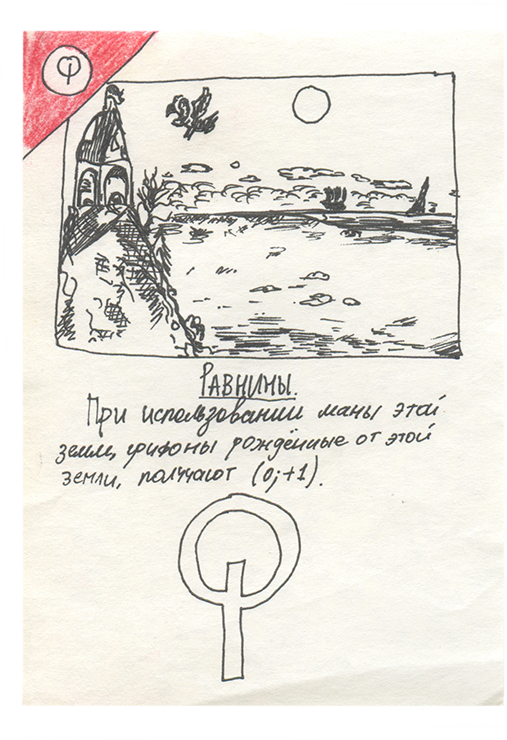 РАВНИНЫ.
При использовании маны этой
земли, грифоны рождённые от этой
земли, получают (0;+1).